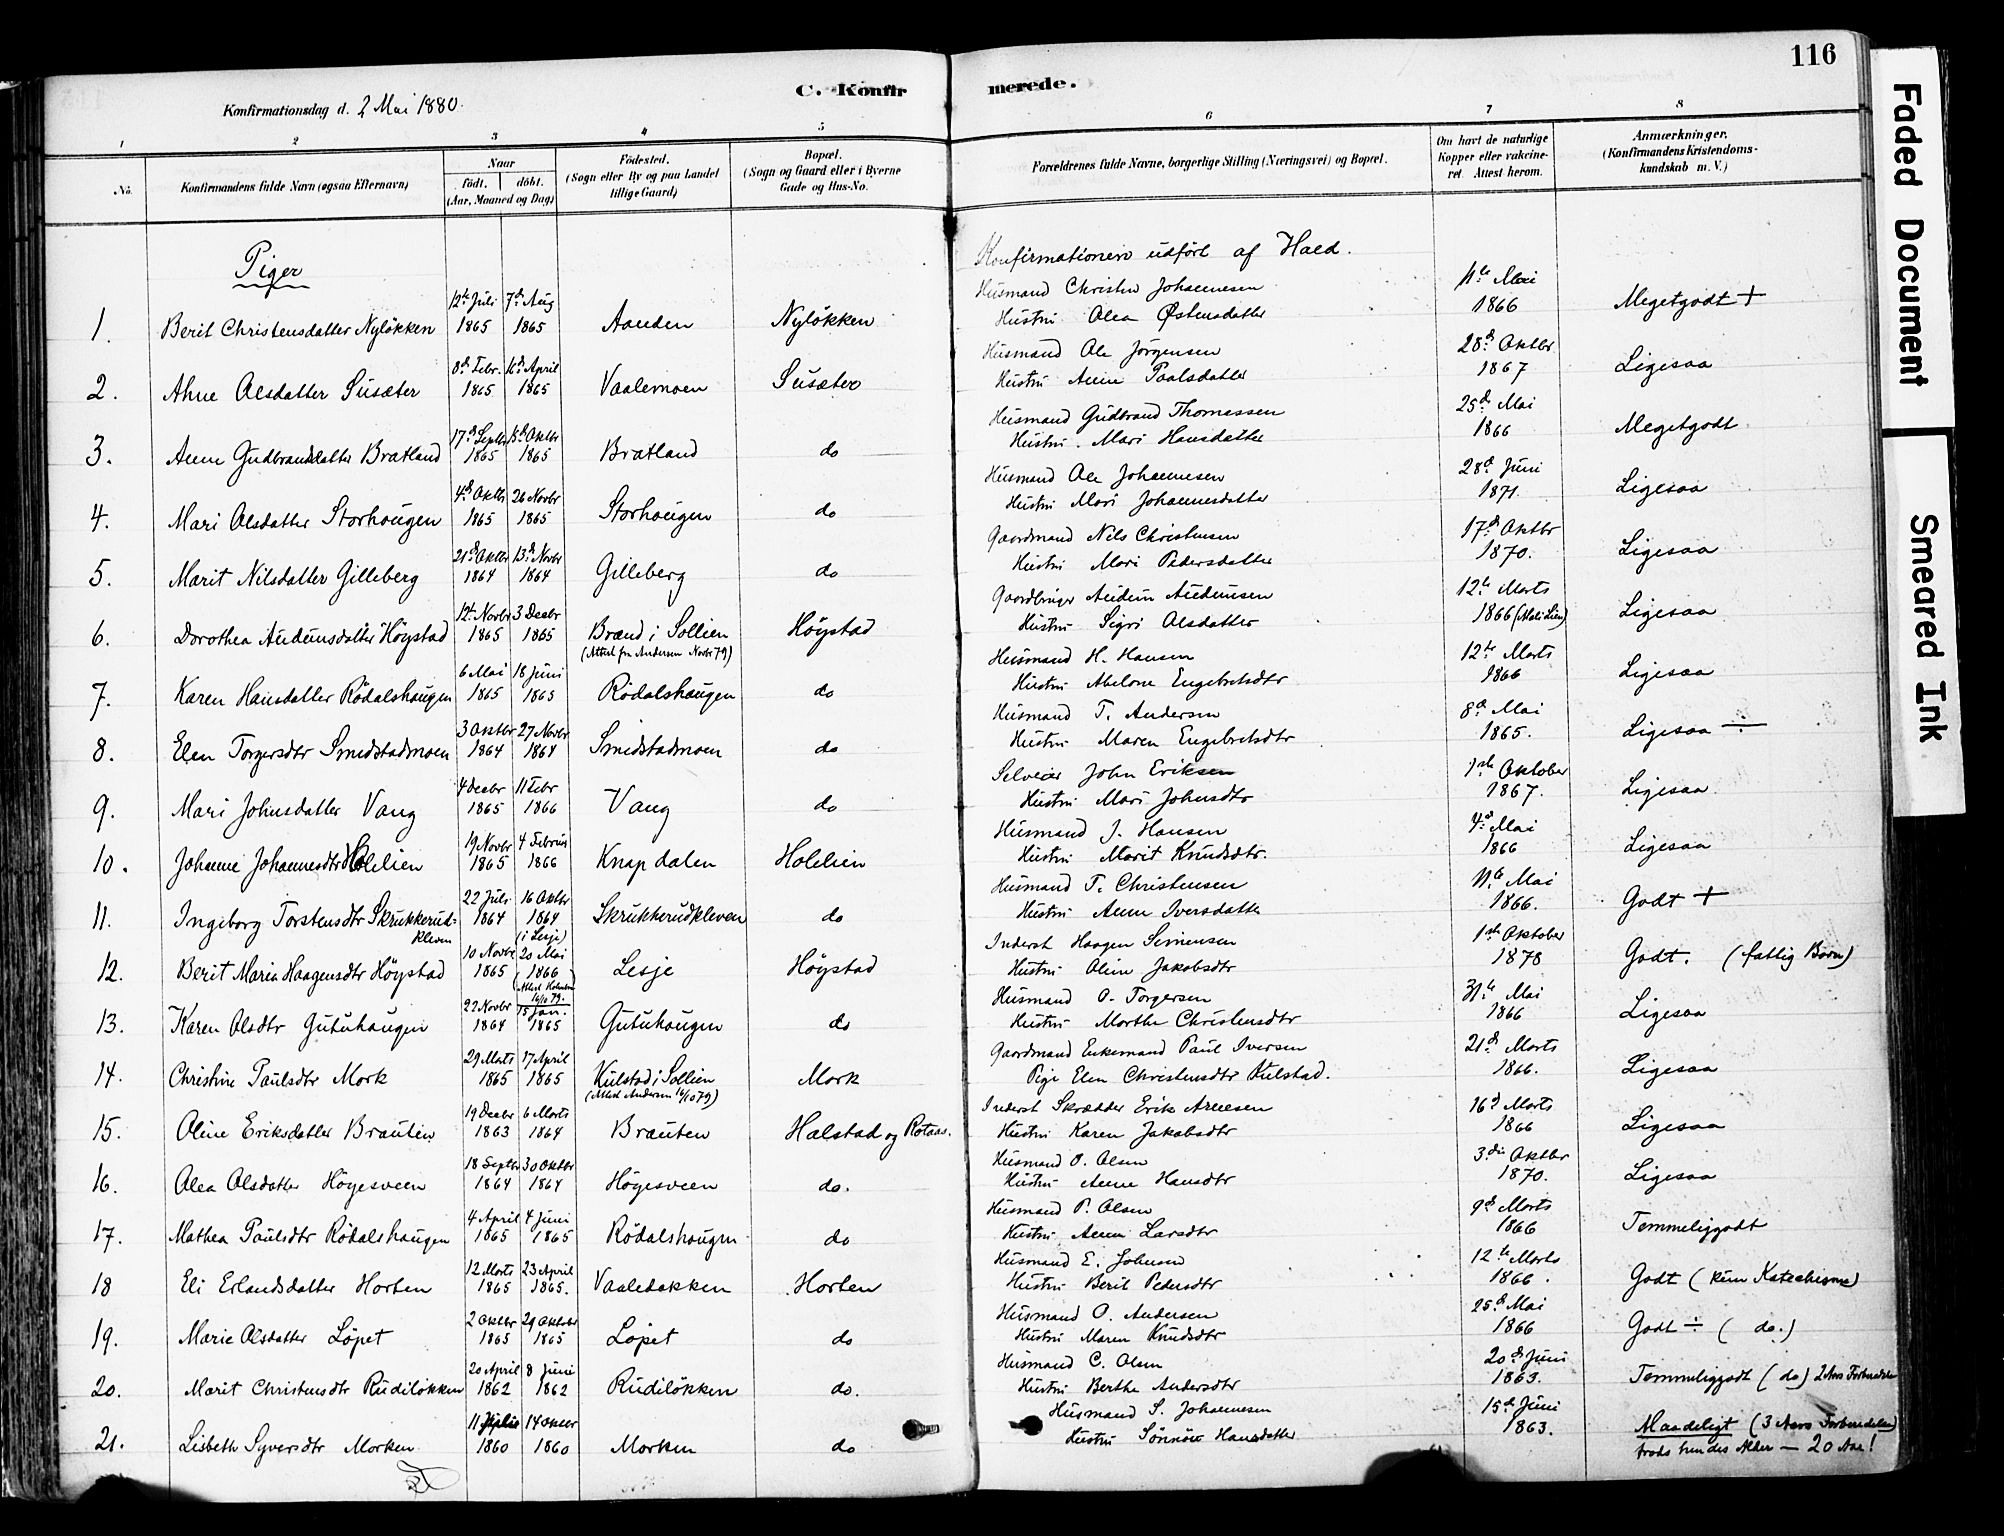 116
Faded Document
Smeared Ink
C. Konfirmerede.
Konfirmationsdag d. 2 Mai 1880.
1 2 3 4 5 6 7 8
No. Konfirmandens fulde Navn (ogsaa Efternavn) Naar født. døbt. (Aar, Maaned og Dag) Fødested. (Sogn eller By og paa Landet tillige Gaard) Bopæl. (Sogn og Gaard eller i Byerne Gade og Hus-No. Forældrenes fulde Navne, borgerlige Stilling (Næringsvei) og Bopæl. Om havt de naturlige Kopper eller vakcineret. Attest herom. Anmærkninger. (Konfirmandens Kristendomskundskab m. V.)
Piger
Konfirmationen udført af Hald.
1. Berit Christensdatter Nyløkken 12te Juli 1865 7d Aug 1865 Aanden Nyløkken Husmand Christen Johannesen Hustru Alea Østensdatter 11te Mai 1866 Megetgodt +
2. Ahne Olsdatter Susæter 8d Febr. 1865 16d April 1865 Vaalemoen Susæter Husmand Ole Jørgensen Hustru Anne Paalsdatter 28d Oktbr 1867 Ligesaa
3. Anne Gudbrandsdatter Bratland 17d Septbr 1865 15d Oktbr 1865 Bratland do Husmand Gudbrand Thomassen Hustru Mari Hansdatter 25d Mai 1866 Megetgodt
4. Mari Olsdatter Storhougen 4d Oktbr 1865 26 Novbr 1865 Storhougen do Husmand Ole Johannesen Hustru Mari Johannesdatter 28d Juni 1871. Ligesaa
5. Marit Nilsdatter Gilleberg 21d Oktbr 1864 13d Novbr 1864 Gilleberg do Gaardmand Nils Christensen Hustru Mari Pedersdatter 17d Oktbr 1870. Ligesaa
6. Dorothea Audunsdatter Høystad 12te Novbr 1865 3 Decbr 1865 Brænd i Sollien (Attest fra Andersen Novbr 79) Høystad Gaardbruger Audun Audunsen Hustru Sigri Olsdatter 12te Marts 1866 (Mali Lien) Ligesaa
7. Karen Hansdatter Rødalshaugen 6 Mai 1865 18 Juni 1865 Rødalshaugen do Husmand H. Hansen Hustru Abelone Engebretsdtr 12te Marts 1866 Ligesaa
8. Elen Torgersdtr Smedstadmoen 3 Oktbr 1864 27 Novbr 1864 Smedstadmoen do Husmand T. Andersen Hustru Maren Engebretsdtr 8d Mai 1865. Ligesaa ÷
9. Mari Johnsdatter Vang 4 Decbr 1865 11 Febr 1866 Vang do Selveier John Eriksen Hustru Mari Johnsdtr 1ste Oktober 1867. Ligesaa
10. Johanne Johannesdtr Holelien 19 Novbr 1865 4 Februar 1866 Knapdalen Holelien Husmand J. Hansen Hustru Marit Knudsdtr. 4d Mai 1866 Ligesaa
11. Ingeborg Torstensdtr Skrukkerudkleven 22 Juli 1864 16 Oktbr 1864 Skrukkerudkleven do Husmand T. Christensen Hustru Anne Iversdatter 11te Mai 1866. Godt +
12. Berit Maria Haagensdtr Høystad 10 Novbr 1865 (i Lesje) 20 Mai 1866 Lesje Høystad Inderst Haagen Simensen Hustru Oline Jakobsdtr 1ste Oktober 1878 Godt. (fattig Barn)
13. Karen Olsdtr Gutuhaugen 22 Novbr 1864 15 Jan. 1865 Gutuhaugen do Husmand O. Torgersen Hustru Marthe Christensdtr 31te Mai 1866 Ligesaa
14. Christine Paulsdtr Mork 29 Marts 1865 17 April 1865 Kulstad i Sollien (Attest Andersen 16/10 79) Mork Gaardmand Enkemand Paul Iversen Pige Elen Christensdtr Kulstad. 21d Marts 1866. Ligesaa
15. Oline Eriksdatter Brauten 19 Decbr 1863 6 Marts 1864 Brauten Halstad og Rotaas. Inderst Skrædder Erik Arnesen Hustru Karen Jakobsdtr 16d Marts 1866 Ligesaa
16. Olea Olsdatter Høgesveen 18 Septbr 1864 30 Oktbr 1864 Høgesveen do. Husmand O. Olsen Hustru Anne Hansdtr 3die Oktbr 1870. Ligesaa
17. Mathea Paulsdtr Rødalshaugen 4 April 1865 4 Juni 1865 Rødalshaugen do Husmand P. Olsen Hustru Anne Larsdtr 9d Marts 1866 Temmeliggodt
18 Eli Erlandsdatter Horten 12 Marts 1865 23 April 1865. Vaaledakken Horten Husmand E. Johnsen Hustru Berit Pedersdtr 12te Marts 1866. Godt (kun Katechisme)
19. Marie Olsdatter Løpet 2 Oktbr 1865 29 Oktober 1865 Løpet do Husmand O. Andersen Hustru Maren Knudsdtr 25d Mai 1866 Godt ÷ (do.)
20. Marit Christensdtr Rudiløkken 20 April 1862 8 Juni 1862 Rudiløkken do. Husmand C. Olsen Hustru Berthe Andersdtr 20d Juni 1863. Temmeliggodt (do) 2 Aars Forberedelse
21. Lisbeth Syversdtr Morken 11 1860 14 Oktbr 1860 Morken do Husmand S. Johannesen Hustru Sønnøv Hansdatter 15d Juni 1863. Maadeligt (3 Aars Forberedelse) trods hendes Alder — 20 Aar!